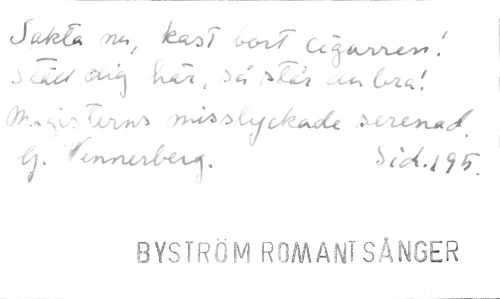 Sakta nu, kast bort cigarren!
Ställ dig här, så står du bra!
Magisterns misslyckade serenad.
G. Wennerberg. Sid. 195.
BYSTRÖM ROMANTSÅNGER